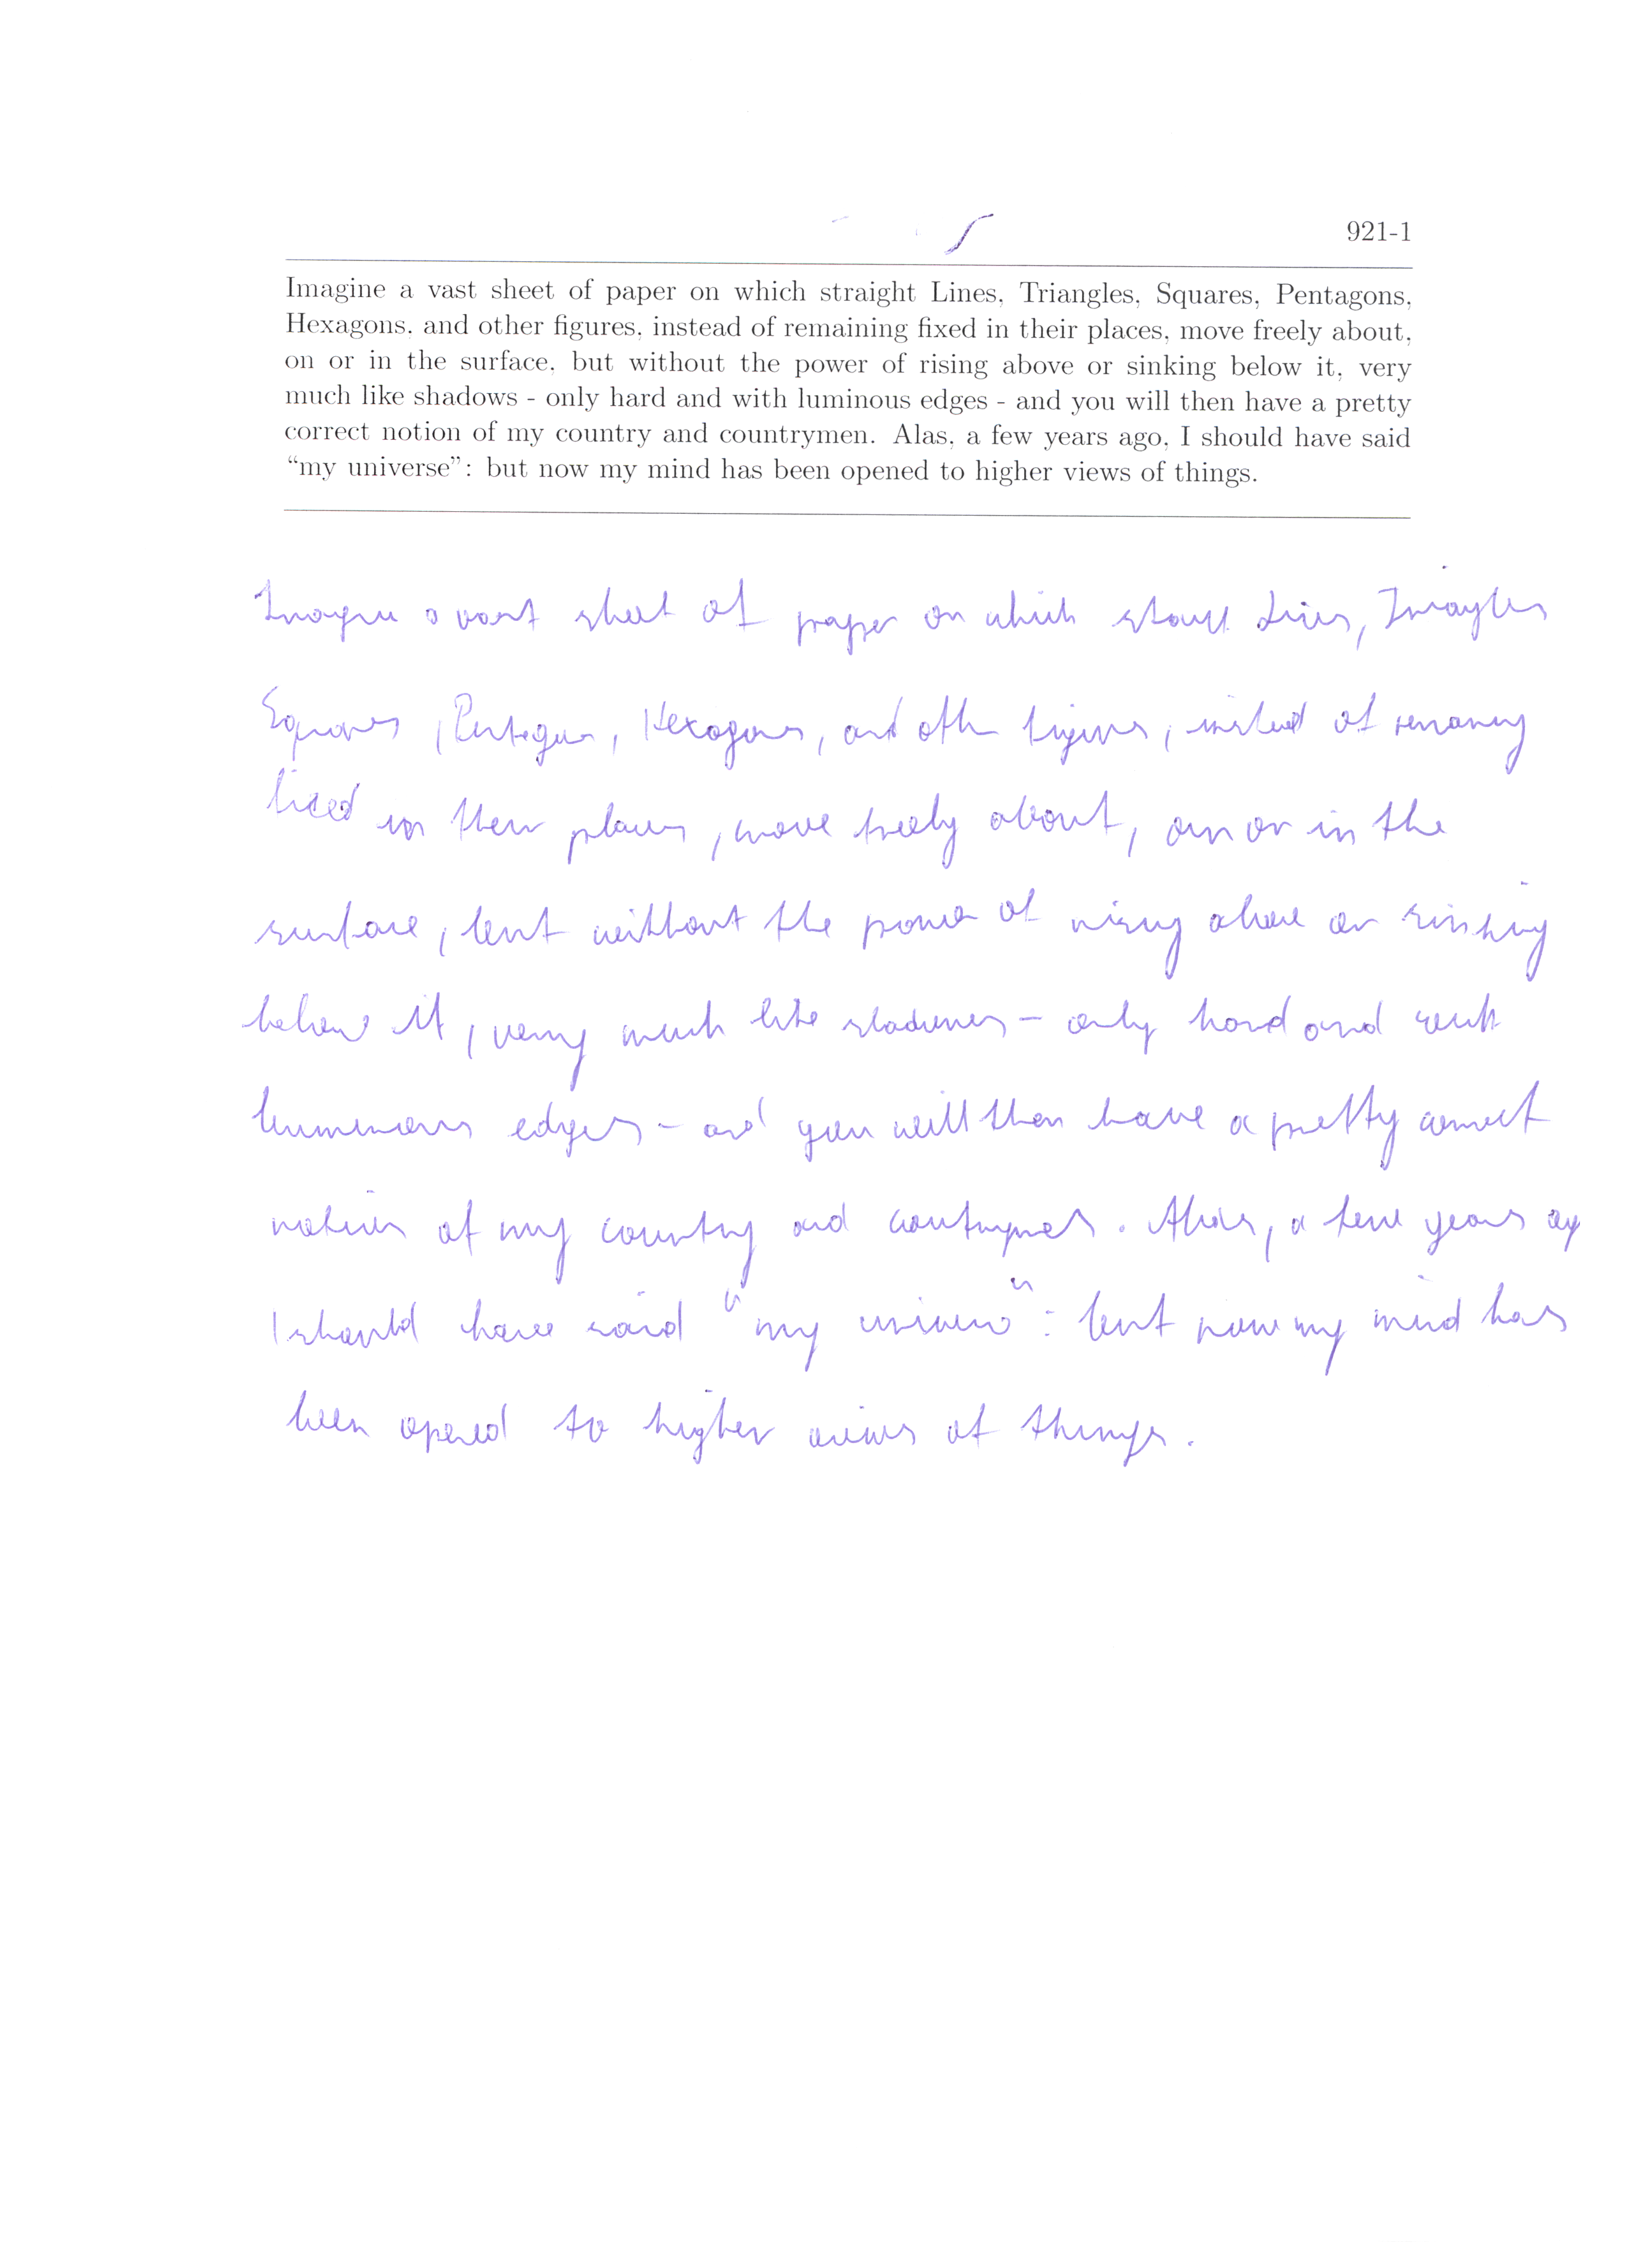 921-1
Imagine a vast sheet of paper on which straight Lines, Triangles, Squares, Pentagons,
Hexagons, and other figures, instead of remaining fixed in their places, move freely about,
on or in the surface, but without the power of rising above or sinking below it, very
much like shadows - only hard and with luminous edges - and you will then have a pretty
correct notion of my country and countrymen. Alas, a few years ago, I should have said
“my universe”: but now my mind has been opened to higher views of things.
Imagine a vast sheet of paper on which Lines, Triangles
Squares, Pentagons, Hexagons, and other figures, instead of remaining
fixed in their places, move freely about, on or in the
surface, but without the power of rising above or sinking
below it, very much like shadows - only hard and with
luminous edges - and you will then have a pretty correct
notion of my country and countrymen. Alas, a few years ago
I should have said "my universe": but now my mind has
been opened to higher views of things.